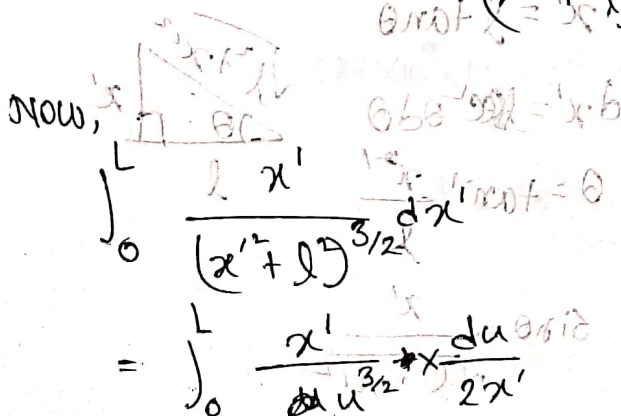 Now,
∫₀ᴸ x' / (x'² + l²)^{3/2} dx'
= ∫₀ᴸ x' / u^{3/2} × du / 2x'